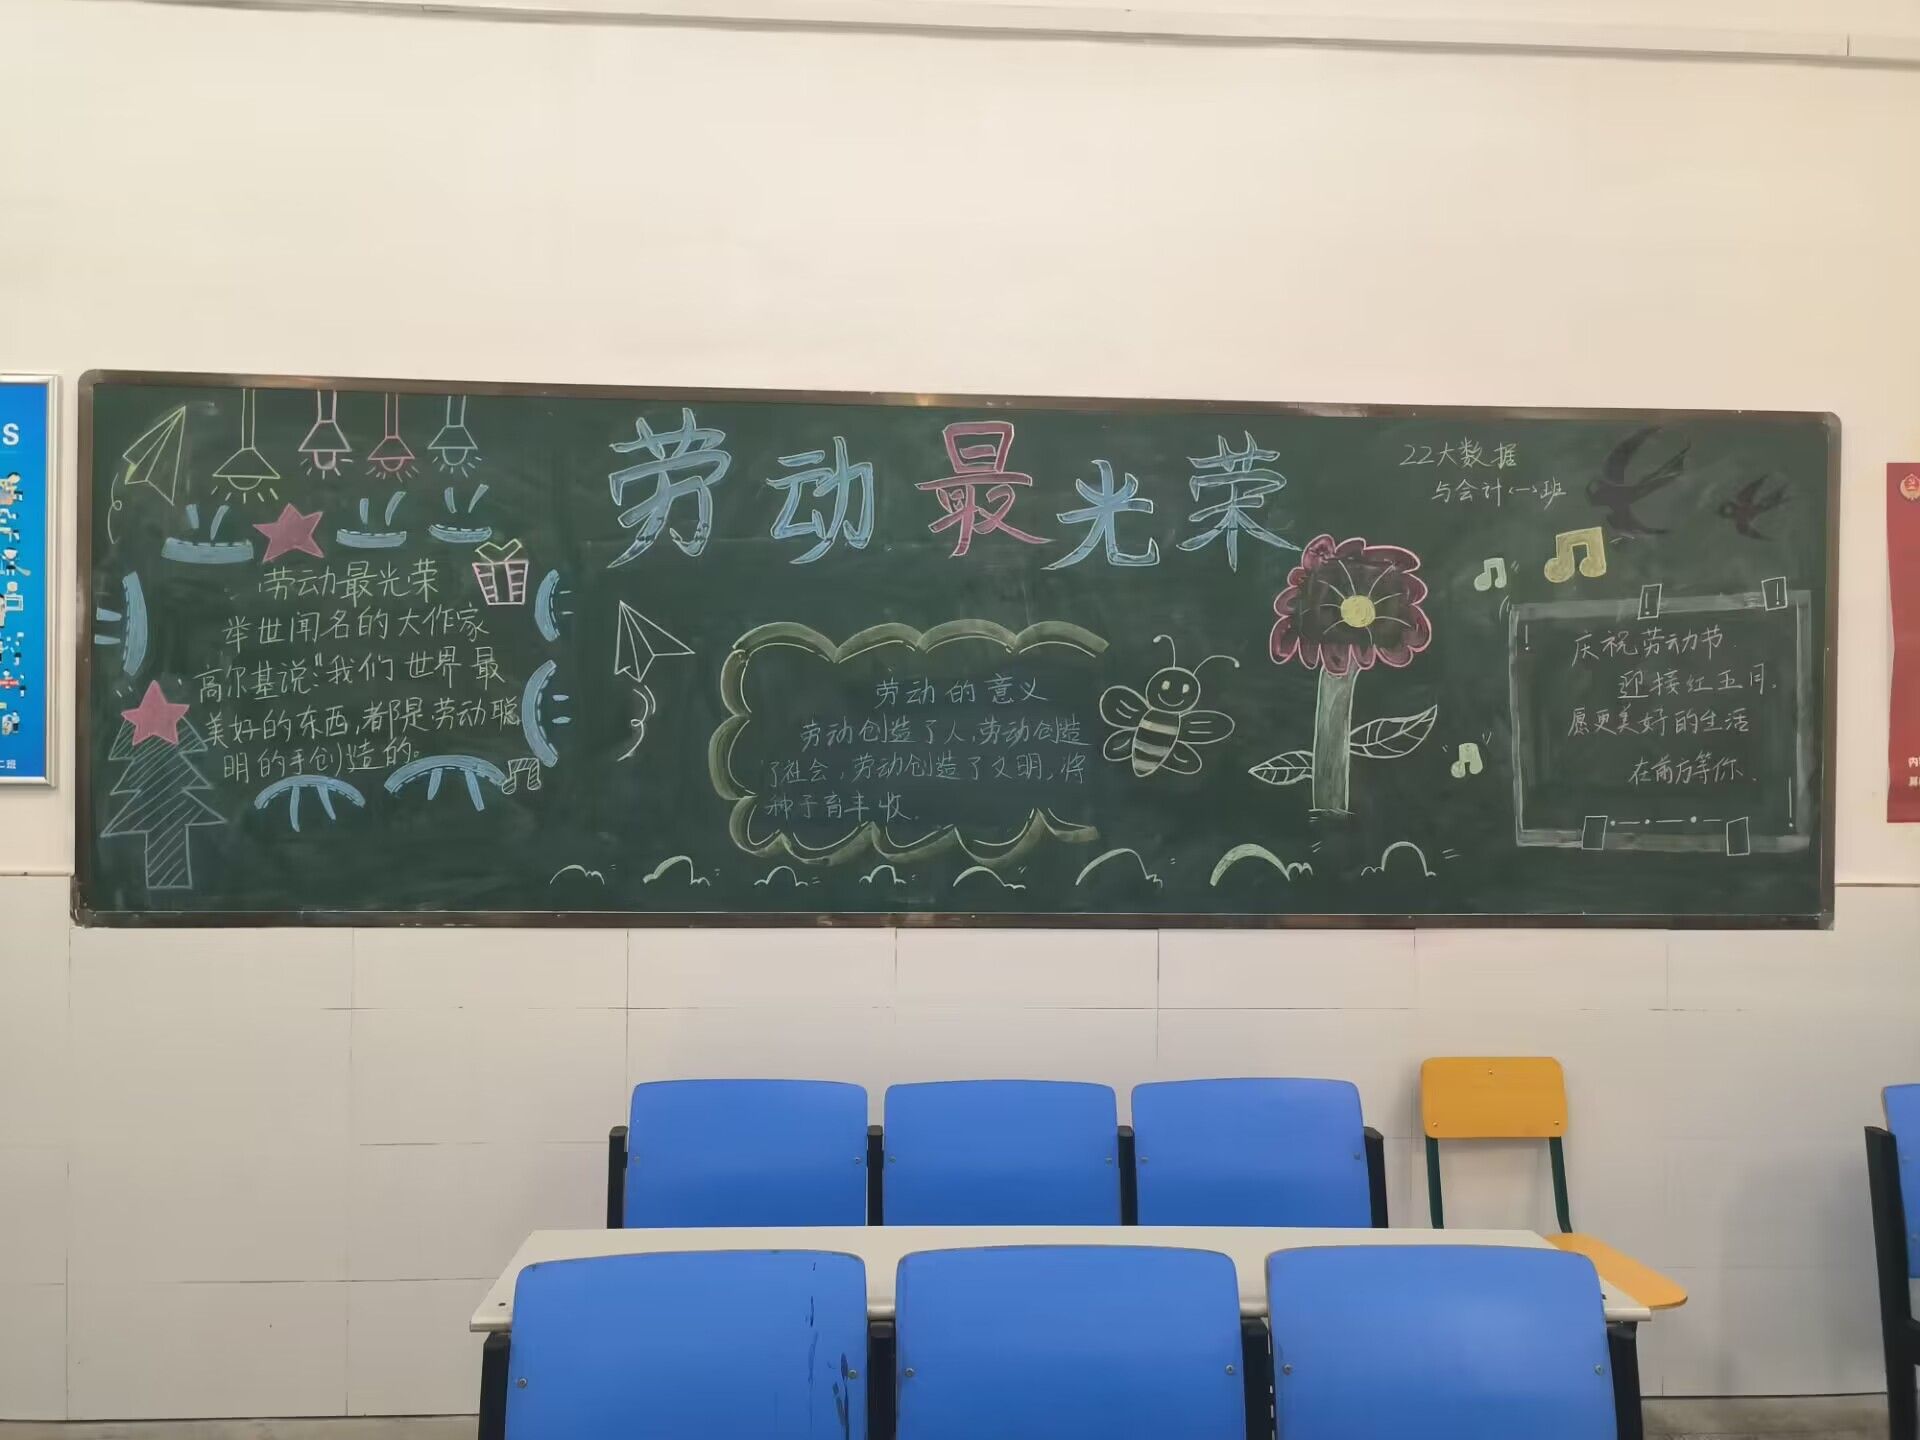 S
二班
劳动最光荣
22大数据
与会计(一)班
劳动最光荣
举世闻名的大作家
高尔基说:"我们世界最
美好的东西,都是劳动聪
明的手创造的。
劳动的意义
劳动创造了人,劳动创造
了社会,劳动创造了文明,将
种子育丰收.
庆祝劳动节
迎接红五月,
愿更美好的生活
在前方等你.